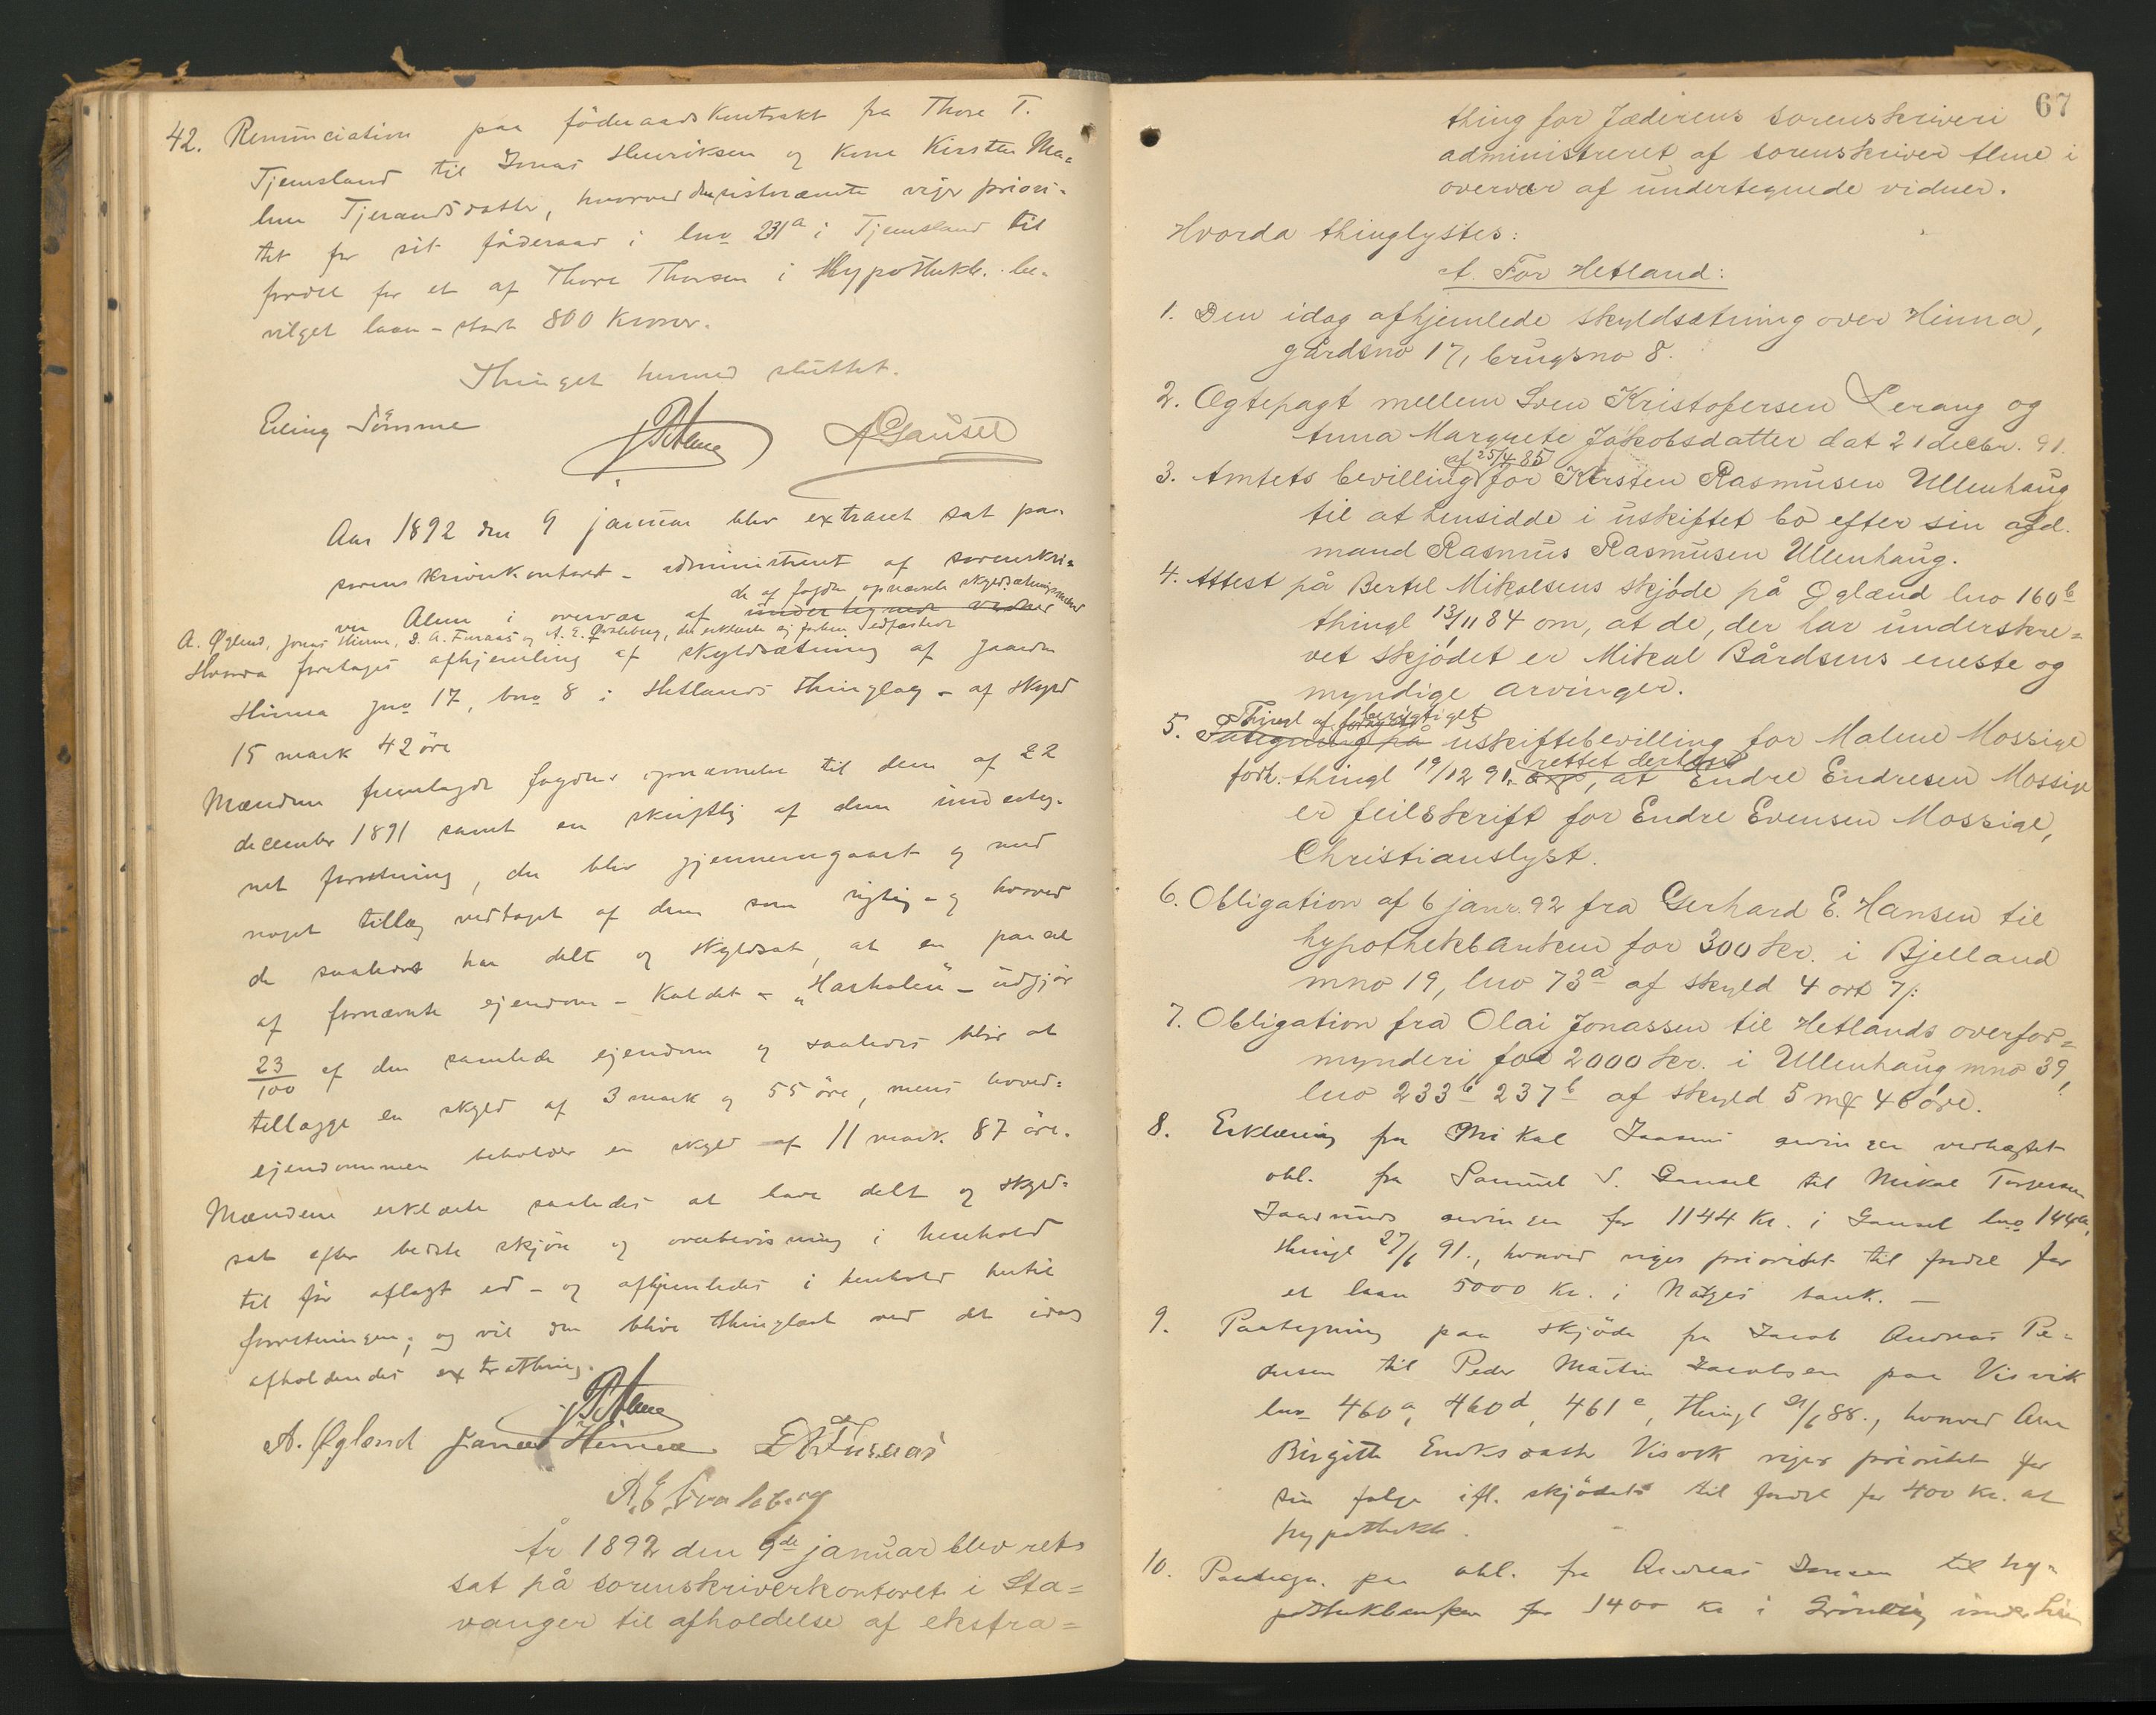 42. Renunciation paa föderaadskontrakt fra Thore T.
Tjemsland til Jonas Henriksen og kone Kirsten Ma-
lene Tjerandsdatter, hvorved den sistnævnte viger priori-
tet for sit föderaad i lno 231a i Tjemsland til
fordel for et af Thore Thorsen i Hypothekb. be-
vilget laan - stort 800 kroner.
Thinget hermed sluttet.
Eiling Sömme A Gausel
Aar 1892 den 9 januar blev extraret sat paa
sorenskriverkontoret - administreret af sorenskri-
de af fogden opnævnte skyldsætningsmænd
ver Alme i overvær af undertegnede vidner
A. Øglend, Jonas Hinna, D. A. Furaas og A. E. Gvaleberg, der erklærte ej forhen edfæstede
Hvorda foretages afhjemling af skyldsætning af gaarden
Hinna gno 17, bno 8 i Hetlands thinglag - af skyld
15 mark 42 öre
Mændene fremlagde fogdens opnævnelse til dem af 22
december 1891 samt en skriftlig af dem underteg-
net forretning, der blev gjennemgaaet og med
noget tillæg vedtaget af dem som rigtig - og hvorved
de saaledes har delt og skyldsat, at en parcel
af fornævnte ejendom - kaldet - "Harhalen" - udgjör
23/100 af den samlede ejendom og saaledes blir at
tillægge en skyld af 3 mark og 55 öre, mens hoved-
ejendommen beholder en skyld af 11 mark 87 öre.
Mændene erklærte saaledes at have delt og skyld-
sat efter bedste skjön og overbevisning i henhold
til för aflagt ed - og afhjemledes i henhold hertil
forretningen; og vil den blive thinglæst ved det idag
afholdendes extrathing.
A. Øglend Jonas Hinna D A Furaas
A. E. Gvaleberg
År 1892 den 9de januar blev ret
sat på sorenskriverkontoret i Sta=
vanger til afholdelse af ekstra=
67
thing for Jæderens sorenskriveri
administreret af sorenskriver Alme i
overvær af undertegnede vidner.
Hvorda thinglystes:
A. For Hetland:
1. Den idag afhjemlede skyldsætning over Hinna,
gårdsno 17, brugsno 8.
2. Ægtepagt mellem Sven Kristofersen Lerang og
Anna Margrete Jakobsdatter dat 21 decbr. 91.
af 25/4 85
3. Amtets bevilling for Kirsten Rasmusen Ullenhaug
til at hensidde i uskiftet bo efter sin afd.
mand Rasmus Rasmusen Ullenhaug.
4. Attest på Bertel Mikalsens skjöde på Øglænd lno 160b
thingl 13/11 84 om, at de, der har underskre=
vet skjödet er Mikal Bårdsens eneste og
myndige arvinger.
Thingl af berigtiget
5. Påtegning på uskiftebevilling for Malene Mossige
rettet derhen
forh. thingl 19/12 91. , at Endre Endresen Mossige
er feilskrift for Endre Evensen Mossige,
Christianslyst.
6. Obligation af 6 janr. 92 fra Gerhard E. Hansen til
hypothekbanken for 300 kr. i Bjelland
mno 19, lno 73a af skyld 4 ort 7 /:
7. Obligation fra Olai Jonassen til Hetlands overfor=
mynderi for 2000 kr. i Ullenhaug mno 39,
lno 233b 237b af skyld 5 mk 46 öre.
8. Erklæring fra Mikal Jaasunds arvinger vedhæftet
obl. fra Samuel S. Gausel til Mikal Torgersen
Jaasunds arvinger for 1144 Kr. i Gausel lno 144a,
thingl 27/6 91., hvorved viges prioritet til fordel for
et laan 5000 Kr. i Norges bank. -
9. Paategning paa skjöde fra Jacob Andreas Pe-
dersen til Peder Martin Jacobsen paa Visvik
lno 460a, 460d, 461c, thingl 21/6 88., hvorved Ane
Birgitte Enoksdatter Visvik viger prioritet for
sin folge ifl. skjödets til fordel for 400 kr. at
hypothekb.
10. Paategn. paa obl. fra Andreas Jonsen til hy-
pothekbanken for 1400 kr i Grönvig under